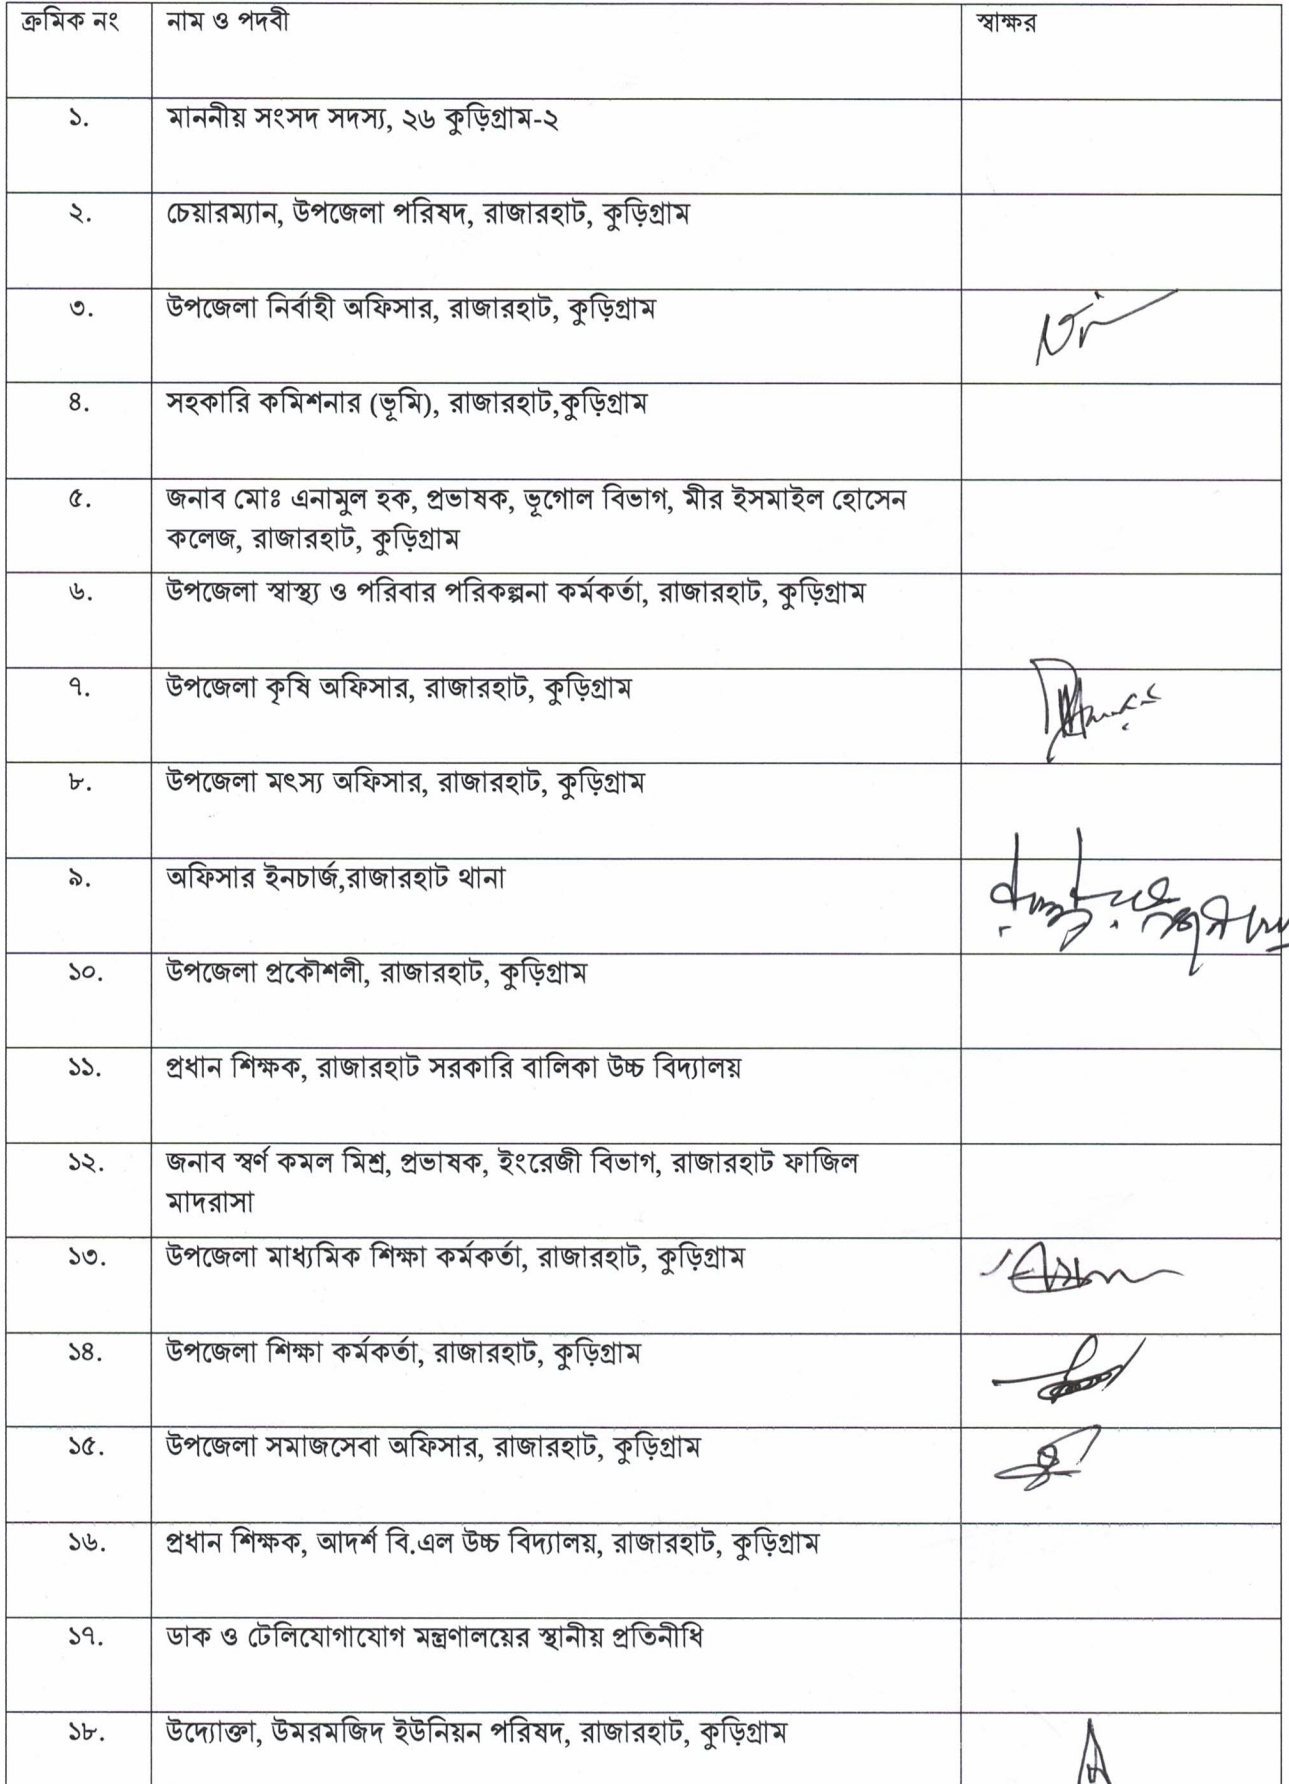 ক্রমিক নং নাম ও পদবী স্বাক্ষর
১. মাননীয় সংসদ সদস্য, ২৬ কুড়িগ্রাম-২
২. চেয়ারম্যান, উপজেলা পরিষদ, রাজারহাট, কুড়িগ্রাম
৩. উপজেলা নির্বাহী অফিসার, রাজারহাট, কুড়িগ্রাম
৪. সহকারি কমিশনার (ভূমি), রাজারহাট,কুড়িগ্রাম
৫. জনাব মোঃ এনামুল হক, প্রভাষক, ভূগোল বিভাগ, মীর ইসমাইল হোসেন
কলেজ, রাজারহাট, কুড়িগ্রাম
৬. উপজেলা স্বাস্থ্য ও পরিবার পরিকল্পনা কর্মকর্তা, রাজারহাট, কুড়িগ্রাম
৭. উপজেলা কৃষি অফিসার, রাজারহাট, কুড়িগ্রাম
৮. উপজেলা মৎস্য অফিসার, রাজারহাট, কুড়িগ্রাম
৯. অফিসার ইনচার্জ,রাজারহাট থানা
১০. উপজেলা প্রকৌশলী, রাজারহাট, কুড়িগ্রাম
১১. প্রধান শিক্ষক, রাজারহাট সরকারি বালিকা উচ্চ বিদ্যালয়
১২. জনাব স্বর্ণ কমল মিশ্র, প্রভাষক, ইংরেজী বিভাগ, রাজারহাট ফাজিল
মাদরাসা
১৩. উপজেলা মাধ্যমিক শিক্ষা কর্মকর্তা, রাজারহাট, কুড়িগ্রাম
১৪. উপজেলা শিক্ষা কর্মকর্তা, রাজারহাট, কুড়িগ্রাম
১৫. উপজেলা সমাজসেবা অফিসার, রাজারহাট, কুড়িগ্রাম
১৬. প্রধান শিক্ষক, আদর্শ বি.এল উচ্চ বিদ্যালয়, রাজারহাট, কুড়িগ্রাম
১৭. ডাক ও টেলিযোগাযোগ মন্ত্রণালয়ের স্থানীয় প্রতিনীধি
১৮. উদ্যোক্তা, উমরমজিদ ইউনিয়ন পরিষদ, রাজারহাট, কুড়িগ্রাম